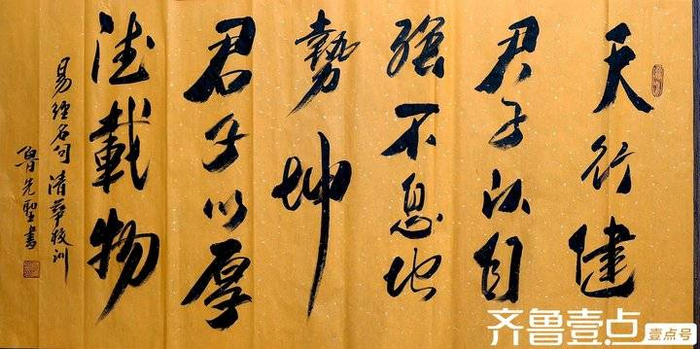 天行健
君子以自
强不息地
势坤
君子以厚
德载物
易经名句清华校训
鲁先圣书
齐鲁壹点
壹点号